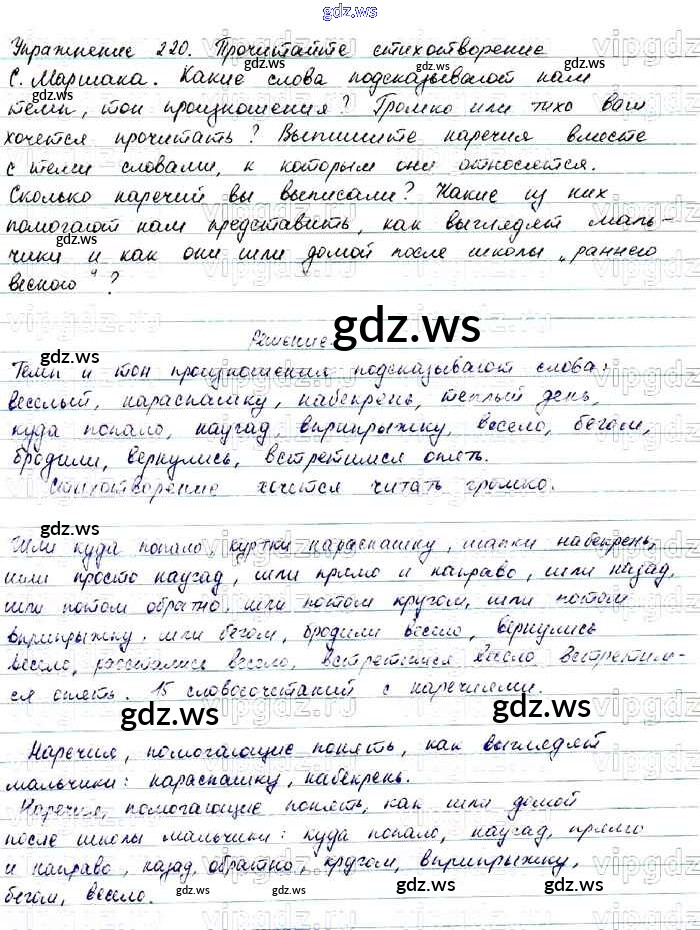 gdz.ws
Упражнение 220. Прочитайте стихотворение
С. Маршака. Какие слова подсказывают нам
темп, тон произношения? Громко или тихо вам
хочется прочитать? Выпишите наречия вместе
с теми словами, к которым они относятся.
Сколько наречий вы выписали? Какие из них
помогают нам представить, как выглядят маль-
чики и как они шли домой после школы „раннею
весною“?
Решение.
Темп и тон произношения подсказывают слова:
веселый, нараспашку, набекрень, теплый день,
куда попало, наугад, вприпрыжку, весело, бегом,
бродили, вернулись, встретимся опять.
Стихотворение хочется читать громко.
Шли куда попало, куртки нараспашку, шапки набекрень,
шли просто наугад, шли прямо и направо, шли назад,
шли потом обратно, шли потом кругом, шли потом
вприпрыжку, шли бегом, бродили весело, вернулись
весело, расстались весело, встретимся весело встретим-
ся опять. 15 словосочетаний с наречиями.
Наречия, помогающие понять, как выглядят
мальчики: нараспашку, набекрень.
Наречия, помогающие понять, как шли домой
после школы мальчики: куда попало, наугад, прямо
и направо, назад, обратно, кругом, вприпрыжку,
бегом, весело.